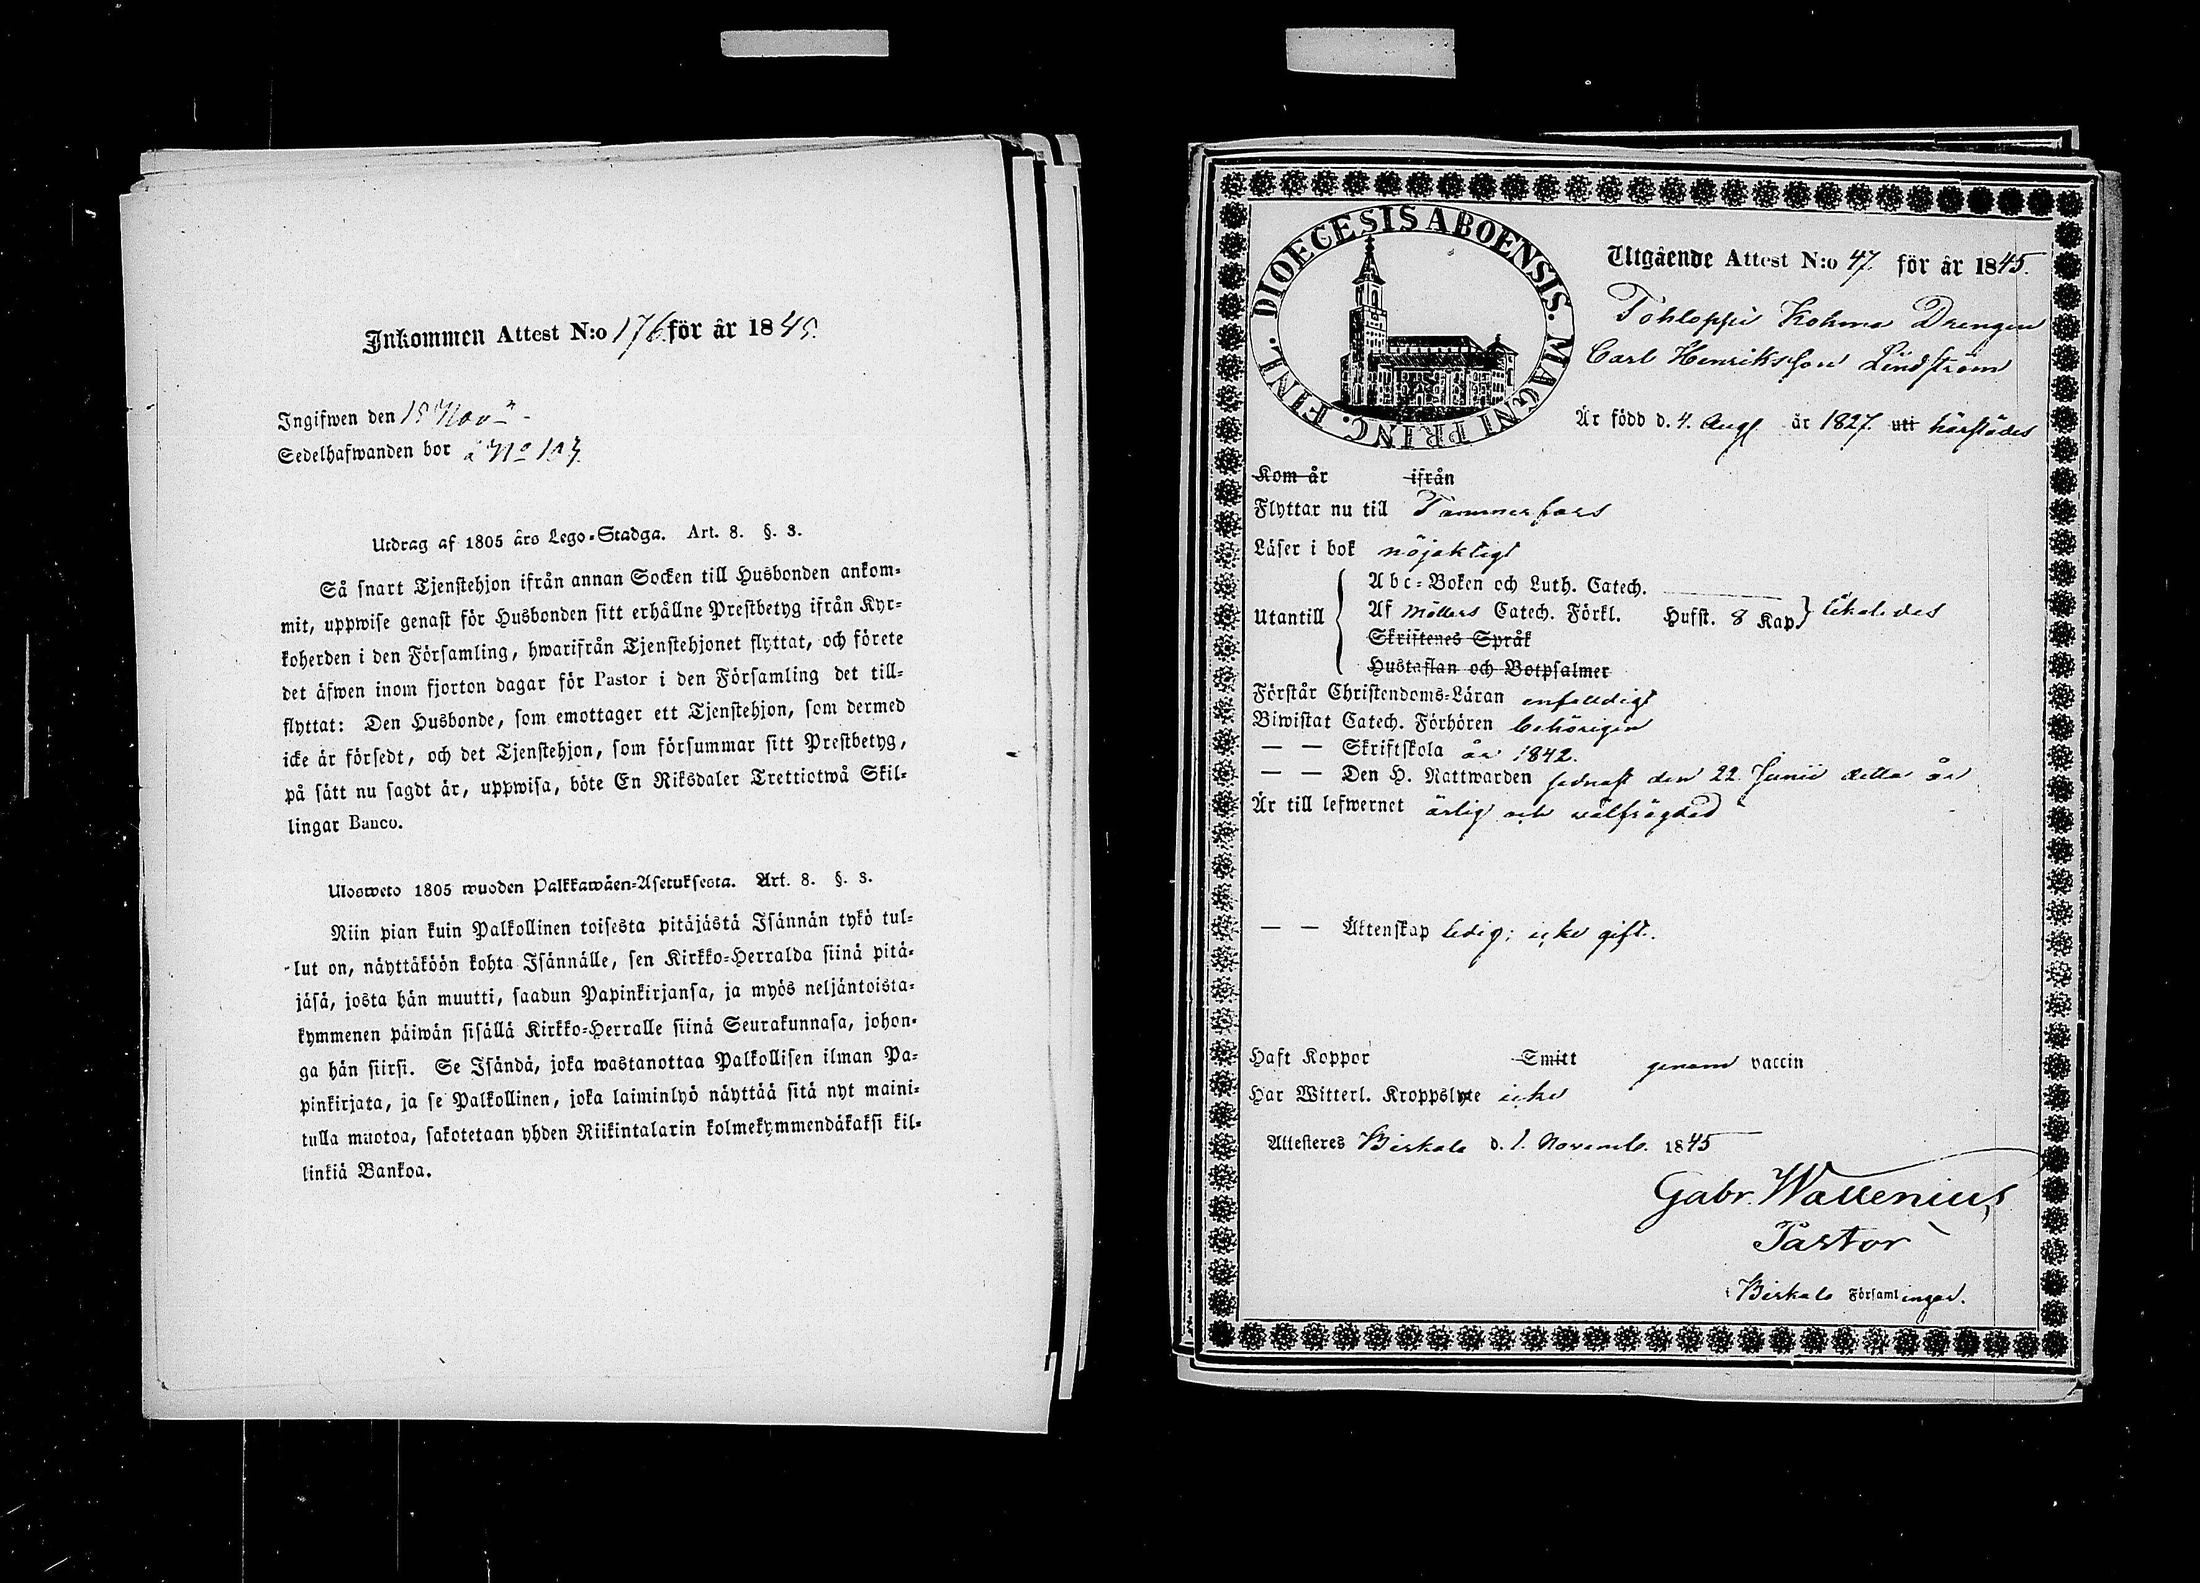 Inkommen Attest N:o 176 för år 1845.
Ingifwen den 18 Nov
Sedelhafwanden bor å No 107
Utdrag af 1805 års Lego-Stadga. Art. 8. §. 3.
Så snart Tjenstehjon ifrån annan Socken till Husbonden ankom-
mit, uppwise genast för Husbonden sitt erhållne Prestbetyg ifrån Kyr-
koherden i den Församling, hwarifrån Tjenstehjonet flyttat, och förete
det äfwen inom fjorton dagar för Pastor i den Församling det till-
flyttat: Den Husbonde, som emottager ett Tjenstehjon, som dermed
icke är försedt, och det Tjenstehjon, som försummar sitt Prestbetyg,
på sätt nu sagdt är, uppwisa, böte En Riksdaler Trettiotwå Skil-
lingar Banco.
Ulosweto 1805 wuoden Palkkawäen-Asetuksesta. Art. 8. §. 3.
Niin pian kuin Palkollinen toisesta pitäjästä Isännän tykö tul-
lut on, näyttäköön kohta Isännälle, sen Kirkko-Herralda siinä pitä-
jäsä, josta hän muutti, saadun Papinkirjansa, ja myös neljäntoista-
kymmenen päiwän sisällä Kirkko-Herralle siinä Seurakunnasa, johon-
ga hän siirsi. Se Isändä, joka wastanottaa Palkollisen ilman Pa-
pinkirjata, ja se Palkollinen, joka laiminlyö näyttää sitä nyt maini-
tulla muotoa, sakotetaan yhden Riikintalarin kolmekymmendäkaksi kil-
linkiä Bankoa.
DIOECESIS ABOENSIS. MAGNI PRINC. FINL.
Utgående Attest N:o 47. för år 1845.
Tohloppi Kohma Drengen
Carl Henriksson Lindström
Är född d. 4. Aug. år 1827. uti härstädes
Kom år ifrån
Flyttar nu till Tammerfors
Läser i bok nöjaktigt
Utantill
Abc-Boken och Luth. Catech.
Af Möllers Catech. Förkl. Hufst. 8 Kap. likaledes
Skriftenes Språk
Hustaflan och Botpsalmer
Förstår Christendoms-Läran enfaldigt
Biwistat Catech. Förhören behörigen
— — Skriftskola år 1842.
— — Den H. Nattwarden sednast den 22 Junii detta år
Är till lefwernet ärlig och wälfrägdad
— — Äktenskap ledig; icke gift.
Haft Koppor Smitt genom vaccin
Har Witterl. Kroppslyte icke
Attesteres Birkala d. 1. Novemb. 1845
Gabr. Wallenius,
Pastor
i Birkala Församlingar.